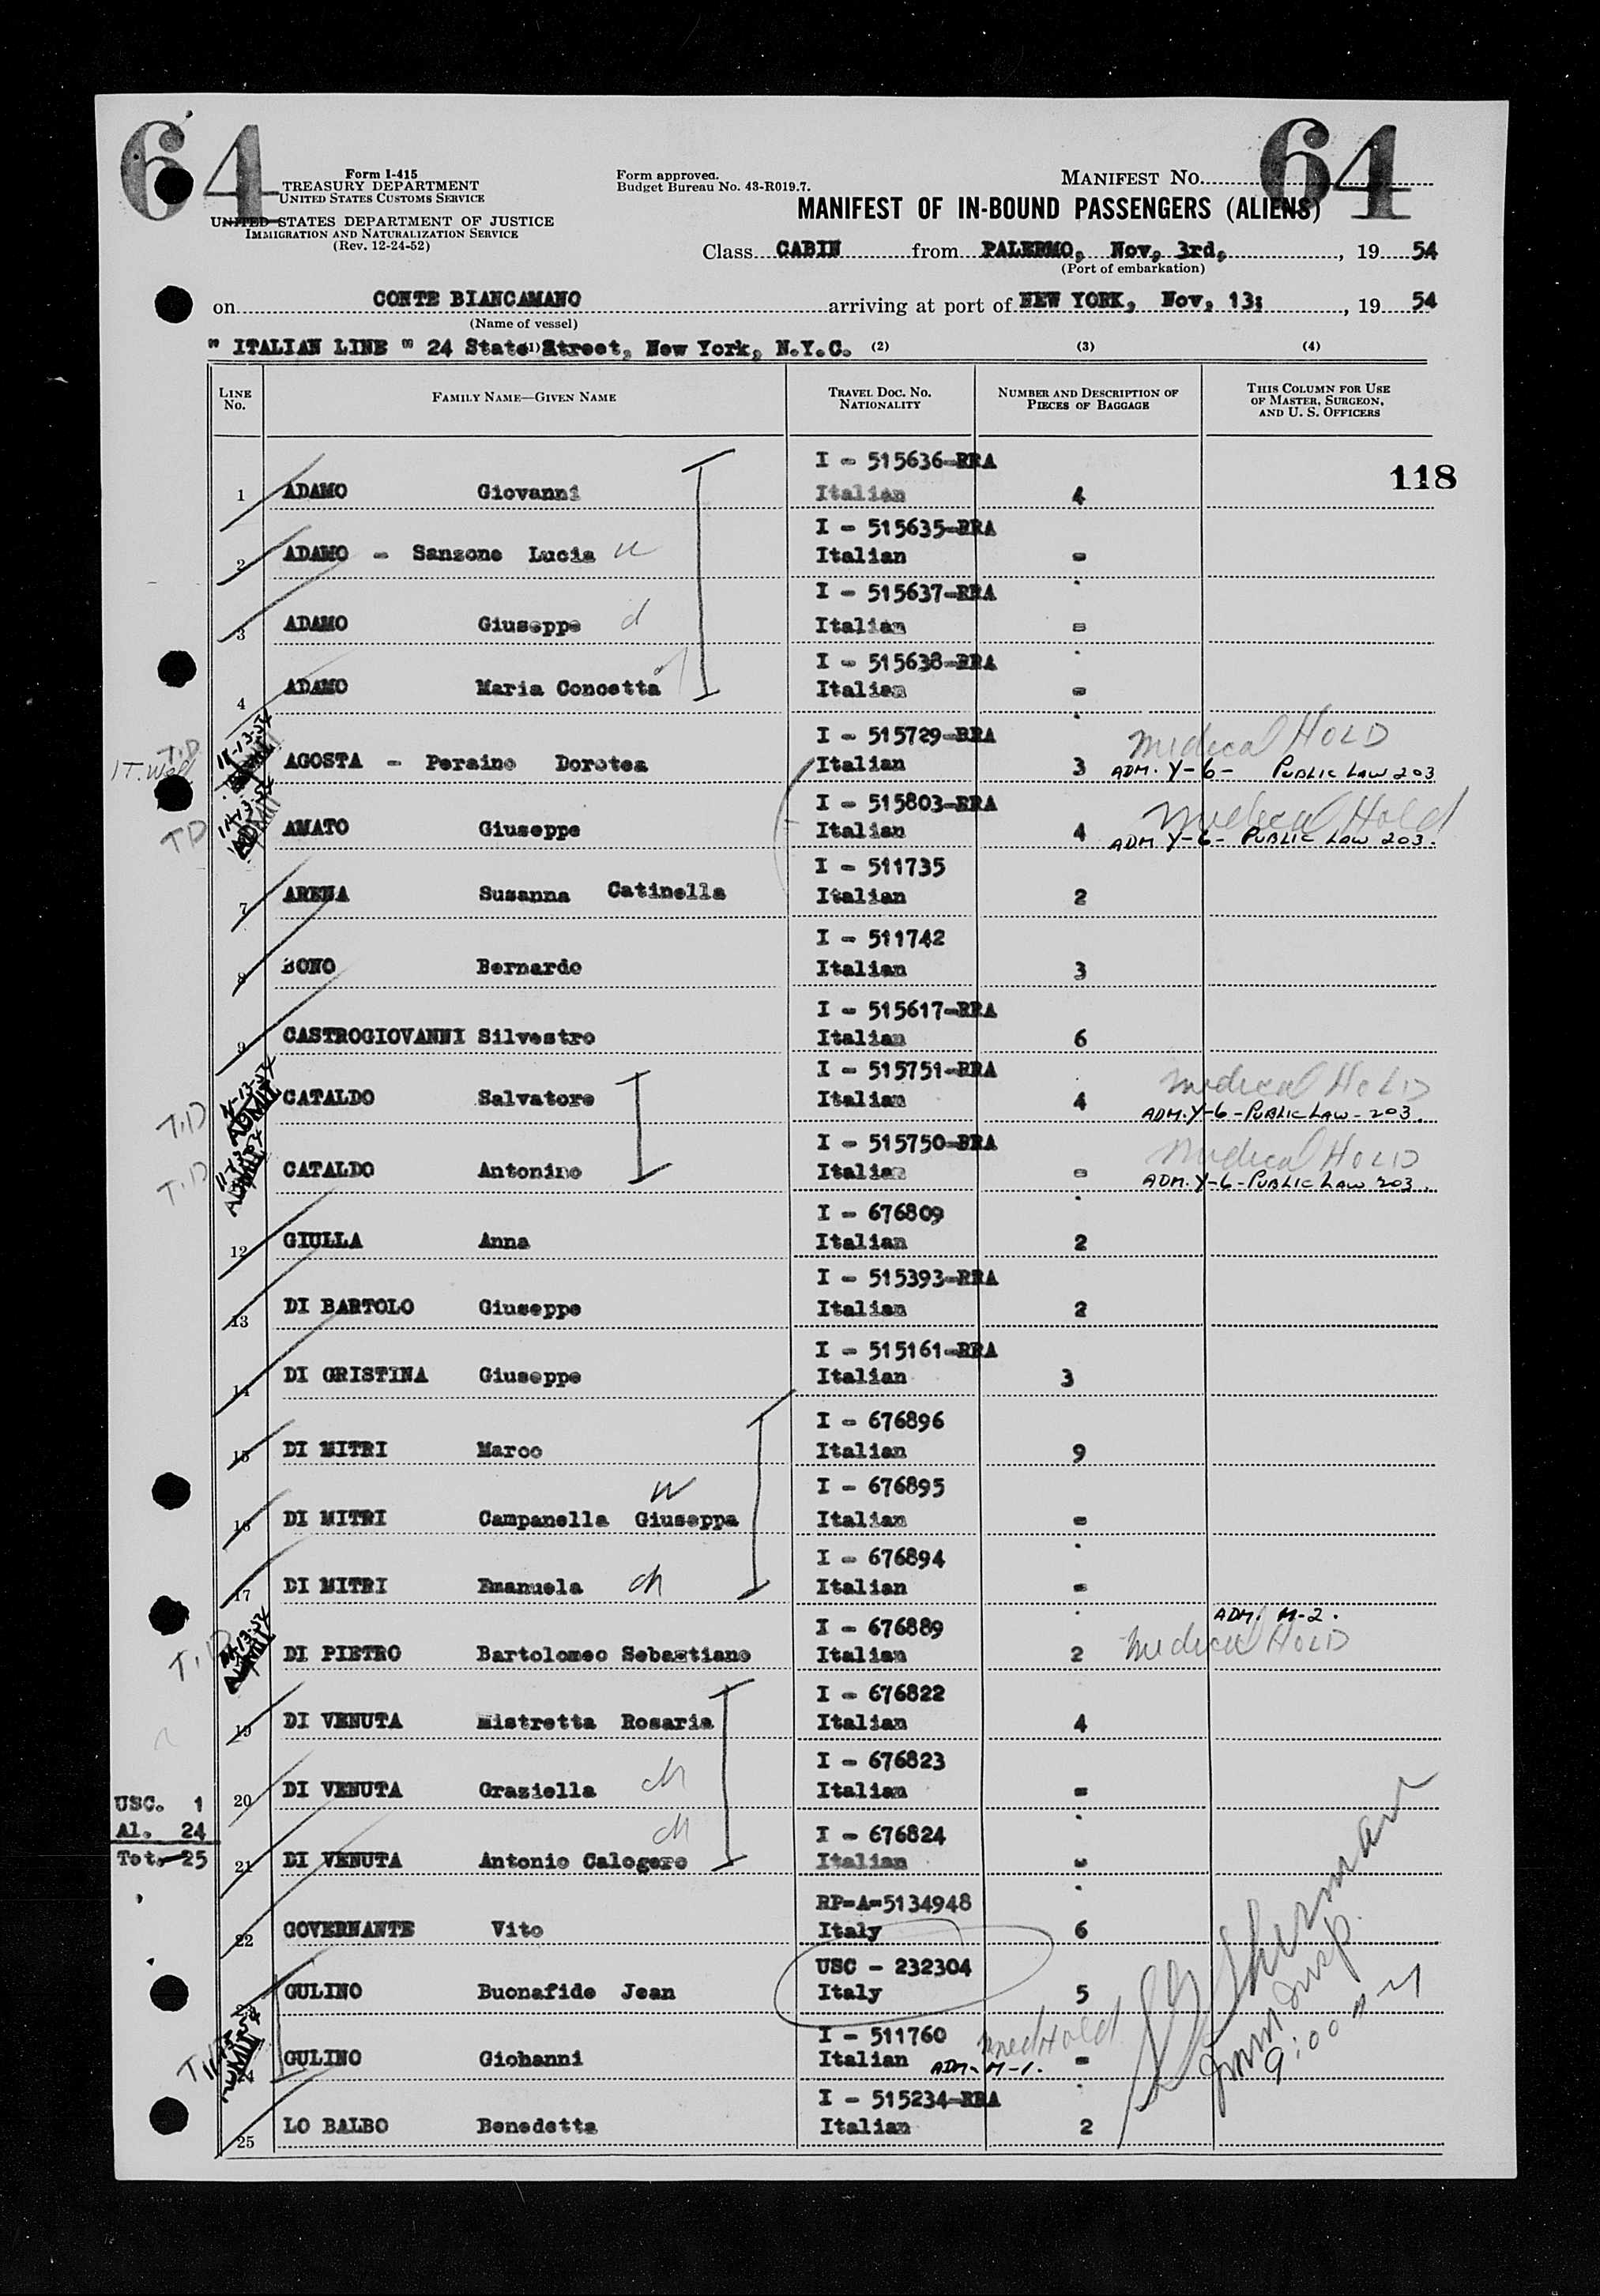 64
64
Form I-415
TREASURY DEPARTMENT
UNITED STATES CUSTOMS SERVICE
UNITED STATES DEPARTMENT OF JUSTICE
IMMIGRATION AND NATURALIZATION SERVICE
(Rev. 12-24-52)
Form approved.
Budget Bureau No. 43-R019.7.
MANIFEST NO.
MANIFEST OF IN-BOUND PASSENGERS (ALIENS)
Class CABIN from PALERMO, Nov, 3rd, , 19 54
(Port of embarkation)
on CONTE BIANCAMANO arriving at port of NEW YORK, Nov, 13; , 19 54
(Name of vessel)
" ITALIAN LINE " 24 State Street, New York, N.Y.C.
(1) (2) (3) (4)
LINE No. FAMILY NAME—GIVEN NAME TRAVEL DOC. NO. NATIONALITY NUMBER AND DESCRIPTION OF PIECES OF BAGGAGE THIS COLUMN FOR USE OF MASTER, SURGEON, AND U. S. OFFICERS
118
I - 515636-RRA
1 ADAMO Giovanni Italian 4
I - 515635-RRA
2 ADAMO - Sanzone Lucia w Italian -
I - 515637-RRA
3 ADAMO Giuseppe d Italian -
I - 515638-RRA
4 ADAMO Maria Concetta Italian -
T.D 11-13-54 I - 515729-RRA Medical HOLD
AGOSTA - Peraino Dorotea Italian 3 ADM. Y-6- PUBLIC LAW 203
TD 11-13-54 ADMIT I - 515803-RRA Medical Hold
AMATO Giuseppe Italian 4 ADM Y-6- PUBLIC LAW 203.
I - 511735
7 ARENA Susanna Catinella Italian 2
I - 511742
8 BONO Bernardo Italian 3
I - 515617-RRA
9 CASTROGIOVANNI Silvestro Italian 6
T.D 11-13-54 ADMIT I - 515751-RRA Medical HOLD
CATALDO Salvatore Italian 4 ADM. Y-6-PUBLIC LAW-203.
T.D 11-13-54 ADMIT I - 515750-RRA Medical HOLD
CATALDO Antonino Italian - ADM. Y-6-PUBLIC LAW 203.
I - 676809
12 GIULLA Anna Italian 2
I - 515393-RRA
13 DI BARTOLO Giuseppe Italian 2
I - 515161-RRA
14 DI GRISTINA Giuseppe Italian 3
I - 676896
15 DI MITRI Marco Italian 9
w I - 676895
16 DI MITRI Campanella Giuseppa Italian -
I - 676894
17 DI MITRI Emanuela ch Italian -
T.D 11-13-54 ADMIT I - 676889 ADM. M-2.
DI PIETRO Bartolomeo Sebastiano Italian 2 Medical HOLD
I - 676822
19 DI VENUTA Mistretta Rosaria Italian 4
I - 676823
20 DI VENUTA Graziella ch Italian -
ch I - 676824
21 DI VENUTA Antonio Calogero Italian -
USC. 1
Al. 24
Tot. 25
RP-A-5134948
22 GOVERNANTE Vito Italy 6
USC - 232304
23 GULINO Buonafide Jean Italy 5
I - 511760 Med Hold
24 GULINO Giohanni Italian ADM- M-1. -
I - 515234-RRA
25 LO BALBO Benedetta Italian 2
Sherman
Imm Insp.
9:00 AM